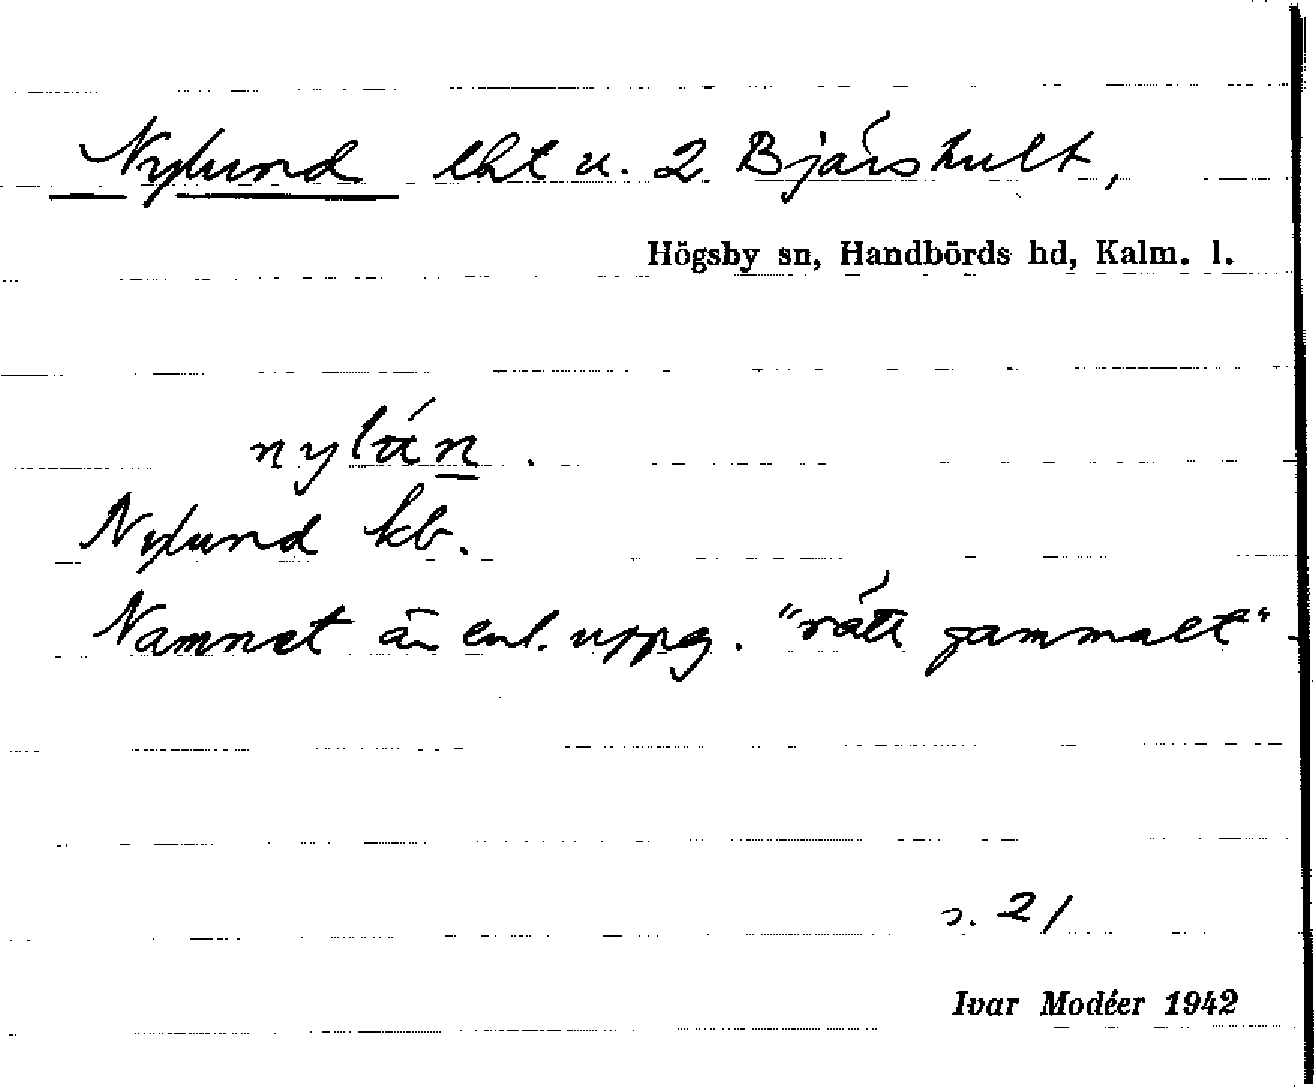 Nylund lht u. 2 Bjärshult,
Högsby sn, Handbörds hd, Kalm. l.
nylún.
Nylund kb.
Namnet är enl. uppg. "rätt gammalt"
s. 21
Ivar Modéer 1942